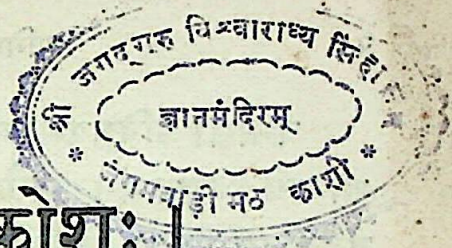 श्री जगद्गुरु विश्वाराध्य
ज्ञानमंदिरम्
* जंगमवाड़ी मठ काशी *
कोशः ।